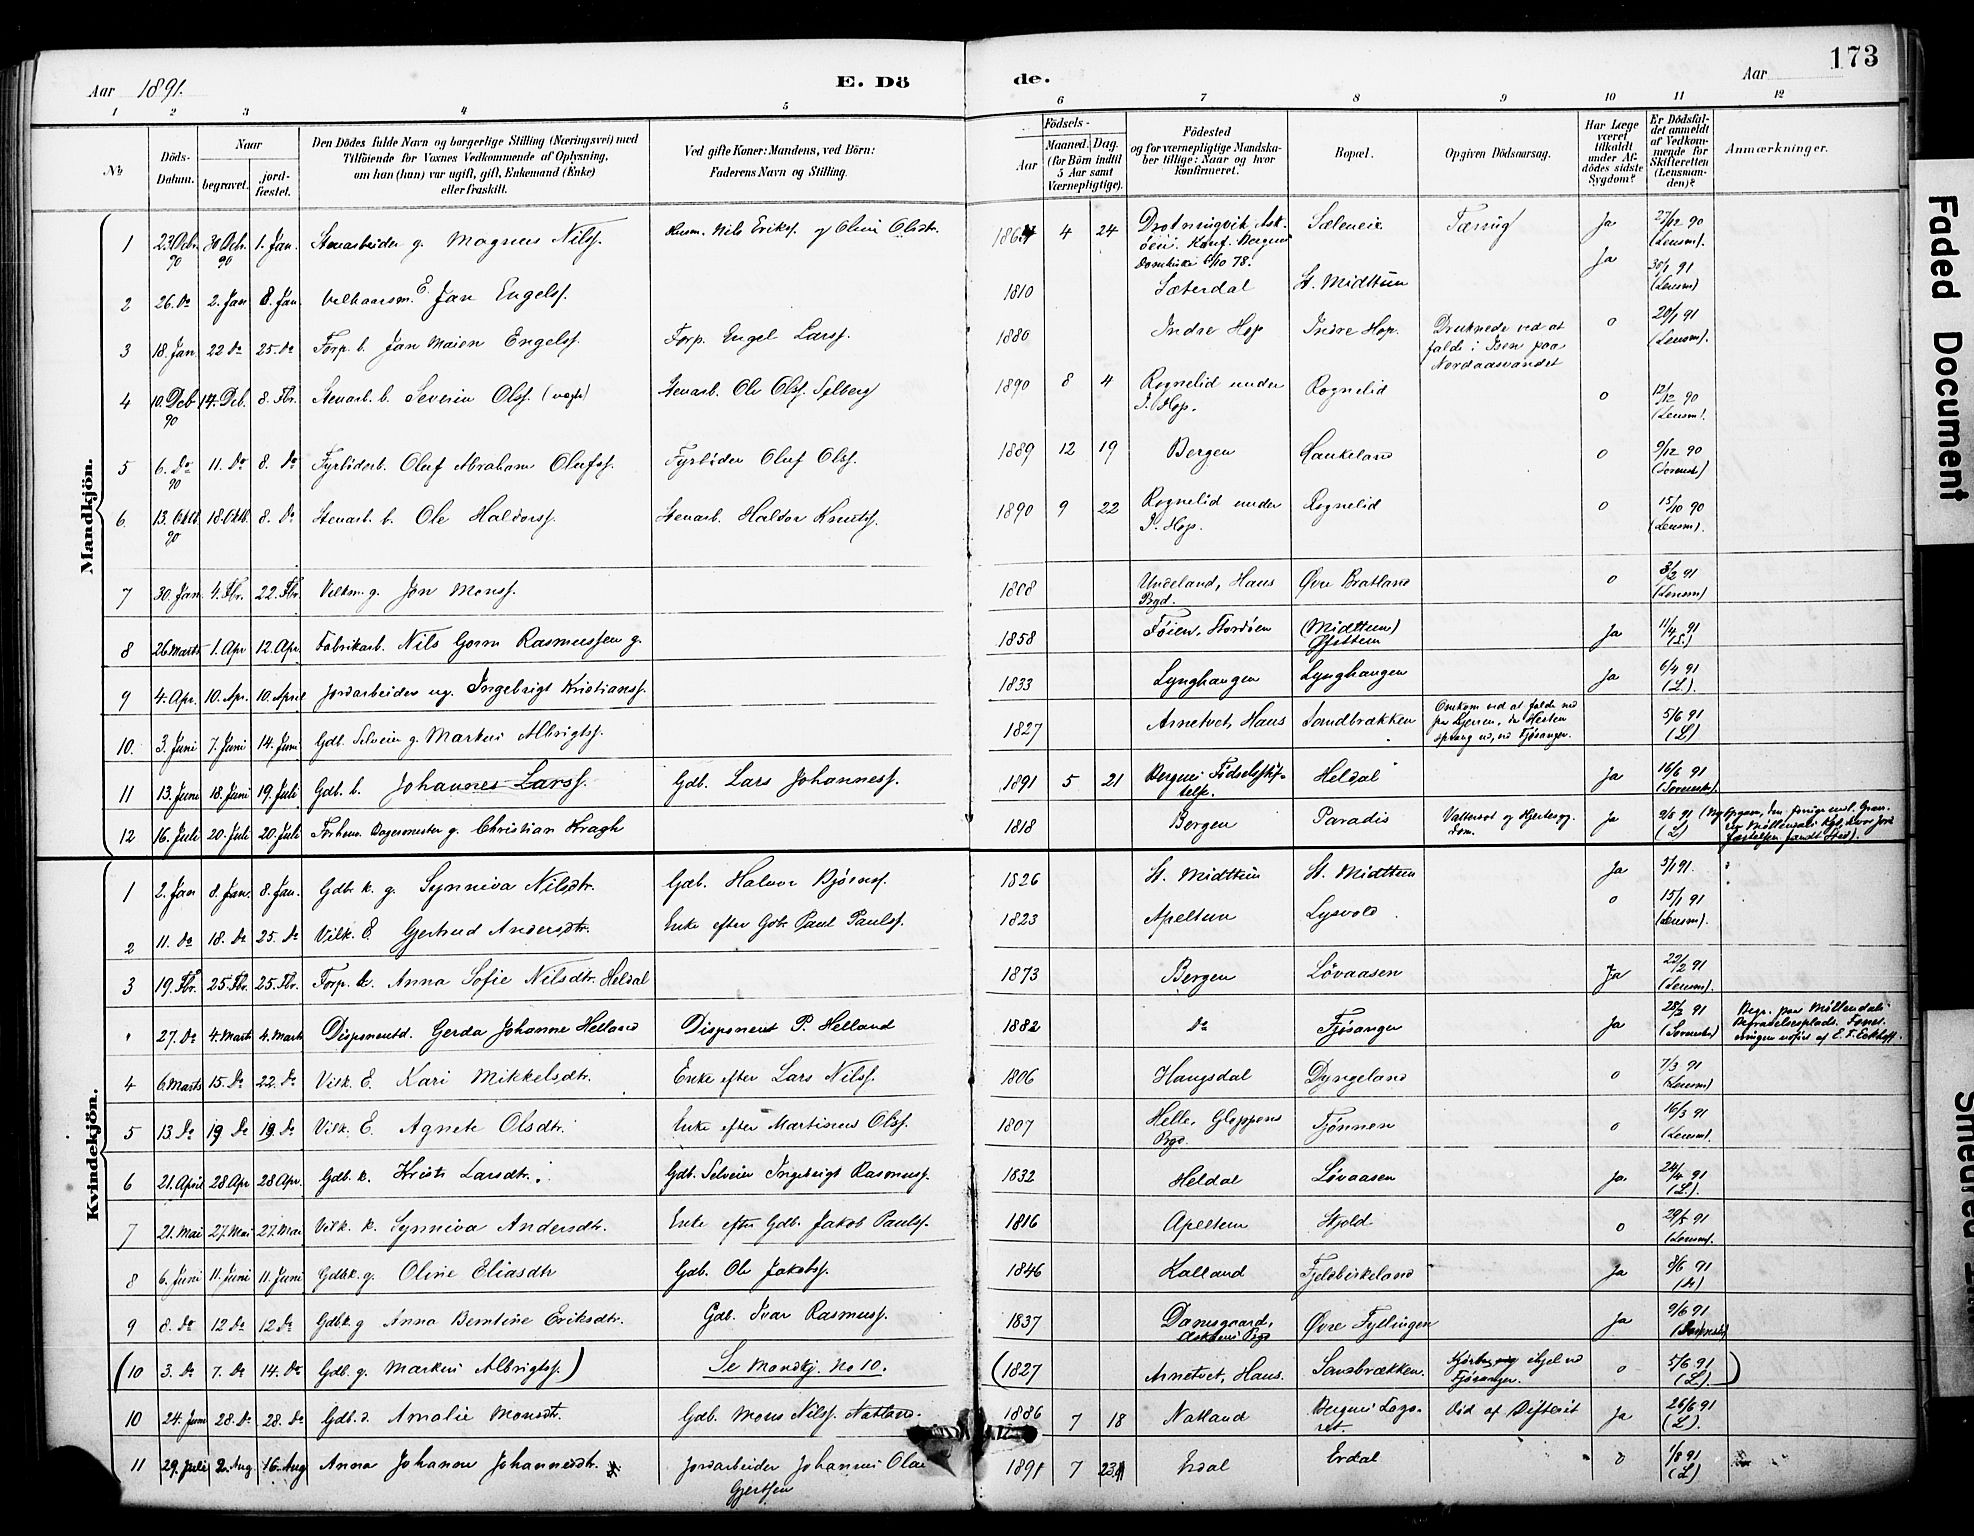 173
Aar 1891.
E. Dö de.
Aar
1 2 3 4 5 6 7 8 9 10 11 12
No
Döds-Datum.
Naar
begravet.
jord-fæstet.
Den Dödes fulde Navn og borgerlige Stilling (Næringsvei) med
Tilföiende for Voxnes Vedkommende af Oplysning,
om han (hun) var ugift, gift, Enkemand (Enke)
eller fraskilt.
Ved gifte Koner: Mandens, ved Börn:
Faderens Navn og Stilling.
Födsels-
Aar
Maaned. Dag.
(for Börn indtil
5 Aar samt
Værnepligtige).
Födested
og for værnepligtige Mandska-
ber tillige: Naar og hvor
konfirmeret.
Bopæl.
Opgiven Dödsaarsag.
Har Læge
været
tilkaldt
under Af-
dödes sidste
Sygdom?
Er Dödsfal-
det anmeldt
af Vedkom-
mende for
Skifteretten
(Lensman-
den)?
Anmærkninger.
Mandkjön.
1 23 Dcbr. 90 30 Dcbr. 90 1. Jan. Stenarbeider g. Magnus Nilss. Husm. Nils Erikss. og Oline Olsdtr. 1864 4 24 Drotningvik, Ask-öen. Konf. Bergens Domkirke 6/10 78. Sæleneie Tæring Ja 27/12 90 (Lensm.)
2 26. Do 2. Jan 8. Jan. Velhaarsm. E. Jan Engelss. 1810 Sæterdal St. Midttun Ja 30/1 91 (Lensm)
3 18. Jan 22 Do 25. Do Forp. b. Jan Maien Engelss. Forp. Engel Larss. 1880 Indre Hop Indre Hop. Druknede ved at falde i Isen paa Nordaasvandet o 20/1 91 (Lensm).
4 10. Dcb 90 14. Dcb. 8. Fbr. Stenarb. b. Severin Olss. (uægte) Stenarb. Ole Olss. Sælberg 1890 8 4 Rognelid under I. Hop. Rognelid o 12/12 90 (Lensm).
5 6. Do 90 11. Do 8. Do Fyrböderb. Oluf Abraham Olufss. Fyrböder Oluf Olss. 1889 12 19 Bergen Haukeland o 9/12 90
6. 13. Oktb. 90 18 Oktb. 8. Do Stenarb. b. Ole Haldorss. Stenarb. Haldor Knutss. 1890 9 22 Rognelid under I. Hop. Rognelid o 15/10 90 (Lensm).
7 30. Jan 4. Fbr. 22. Fbr. Vilkm. g. Jon Monss. 1808 Undeland, Haus Pgd. Øvre Bratland o 3/2 91 (Lensm)
8 26 Marts 1. Apr 12. Apr. Fabrikarb. Nils Gorm Rasmussen g. 1858 Føien, Stordöen (Midttun) Øfsttun Ja 11/4 91
9 4. Apr. 10. Apr. 10. April Jordarbeider ug. Ingebrigt Kristianss. 1833 Lynghaugen Lynghaugen Ja 6/4 91 (L).
10. 3. Juni 7. Juni 14. Juni Gdb. Selveier g. Markus Albrigtss. 1827 Arnetvet, Haus Sandbrækken Omkom ved at falde ned fra Kjerren, da Hesten sprang ud, ved Fjösanger. 5/6 91 (L)
11 13. Juni 18. Juni 19. Juli Gdb. b. Johannes Larss. Gdb. Lars Johanness. 1891 5 21 Bergens Födselsstif-telse. Heldal Ja 16/6 91
12 16. Juli 20. Juli 20. Juli Forhenv. Bagermester g. Christian Kragh 1818 Bergen Paradis Vattersot og Hjertesyg-dom. Ja (L)
Kvindekjön.
1 2. Jan 8. Jan. 8. Jan. Gdbr. k. g. Synniva Nilsdtr. Gdb. Halvor Bjørnss. 1826 St. Midttun St. Midttun Ja 3/1 91.
2 11. Do 18. Do 25. Do Vilk. E. Gjertrud Andersdtr. Enke efter Gdbr. Paul Paulss. 1823 Apeltun Lysvold o 15/1 91 (Lensm).
3 19. Fbr. 25. Fbr. 25. Fbr. Forp. k. Anna Sofie Nilsdtr. Heldal 1873 Bergen Løvaasen Ja 22/2 91 (Lensm).
" 27. Do 4. Marts 4. Marts Disponentd. Gerda Johanne Helland Disponent P. Helland 1882 Do Fjösanger Ja 28/2 91 Begr. paa Møllendals Begravelsesplads. Forret-ningen udført af E. F. Eckhoff.
4 6. Marts 15. Do 22. Do Vilk. E. Kari Mikkelsdtr. Enke efter Lars Nilss. 1806 Haugsdal Dyngeland o 7/3 91 (Lensm)
5 13. Do 19 Do 19. Do Vilk. E. Agnete Olsdtr. Enke efter Martinus Olss. 1807 Helle, Gloppens Pgd. Tjønnen o 16/3 91 (Lensm).
6 21. April 28 Apr 28 Apr. Gdb. k. Kristi Larsdtr. Gdb. Selveier Ingebrigt Rasmuss. 1832 Heldal Løvaasen Ja 24/4 91 (L).
7 21. Mai 27. Mai 27. Mai Vilk. k. Synniva Andersdtr. Enke efter Gdb. Jakob Paulss. 1816 Apeltun Skjold o 29/5 91 (Lensm).
8 6. Juni 11. Juni 11. Juni Gdbk. g. Oline Eliasdtr Gdb. Ole Jakobss. 1846 Kalland Fjeldbirkeland Ja 9/6 91
9 8. Do 12 Do 12 Do Gdbk. g Anna Berntine Eriksdtr. Gdb. Ivar Rasmuss. 1837 Damsgaard, Askøens Pgd Øvre Fyllingen Ja 9/6 91
(10 3. Do 7. Do 14. Do Gdb. g. Markus Albrigtss.) Se Mandkj. No 10. (1827 Arnetvet, Haus. Sandbrækken. ihjel ved Fjösanger. o 5/6 91 (L).)
10 24. Juni 28. Do 28. Do Gdb. d. Amalie Monsdtr. Gdb. Mons Nilss. Natland. 1886 7 18 Natland Bergens Laza-ret. Död af Difterit Ja 26/6 91 (L).
11 29. Juli 2. Aug. 16. Aug Anna Johanna Johannesdtr. Jordarbeider Johannes Olai Gjertsen 1891 7 23 Erdal Erdal o 1/8 91 (L)
Faded Document
Smeared Ink